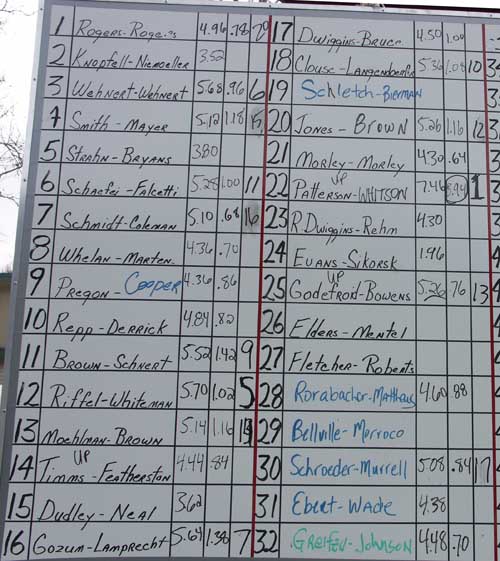 1 Rogers-Rogers 4.96 .78
2 Knopfell-Niemoeller 3.52
3 Wehnert-Wehnert 5.68 .96 6
4 Smith-Mayer 5.12 1.18
5 Strahn-Bryans 3.80
6 Schaefei-Falcetti 5.28 1.00 11
7 Schmidt-Coleman 5.10 .68 16
8 Whelan-Marten 4.36 .70
9 Pregon-Cooper 4.36 .86
10 Repp-Derrick 4.84 .82
11 Brown-Schnert 5.52 1.42 9
12 Riffel-Whiteman 5.70 1.02 5
13 Moehlman-Brown 5.14 1.16
14 Timms-Featherston UP 4.44 .84
15 Dudley-Neal 3.62
16 Gozum-Lamprecht 5.64 1.38 7
17 Dwiggins-Bruce 4.50 1.00
18 Clouse-Langendoerfer 5.36 1.08 10
19 Schletch-Bierman
20 Jones-Brown 5.26 1.16 12
21 Morley-Morley 4.30 .64
22 Patterson-Whitson UP 7.46 3.94 1
23 R.Dwiggins-Rehm 4.30
24 Evans-Sikorsk 1.96
25 Godefroid-Bowens UP 5.26 .76 13
26 Elders-Mentel
27 Fletcher-Roberts
28 Rorabacher-Matthaus 4.60 .88
29 Bellville-Morroco
30 Schroeder-Murrell 5.08 .84 17
31 Ebert-Wade 4.38
32 Greifen-Johnson 4.48 .70